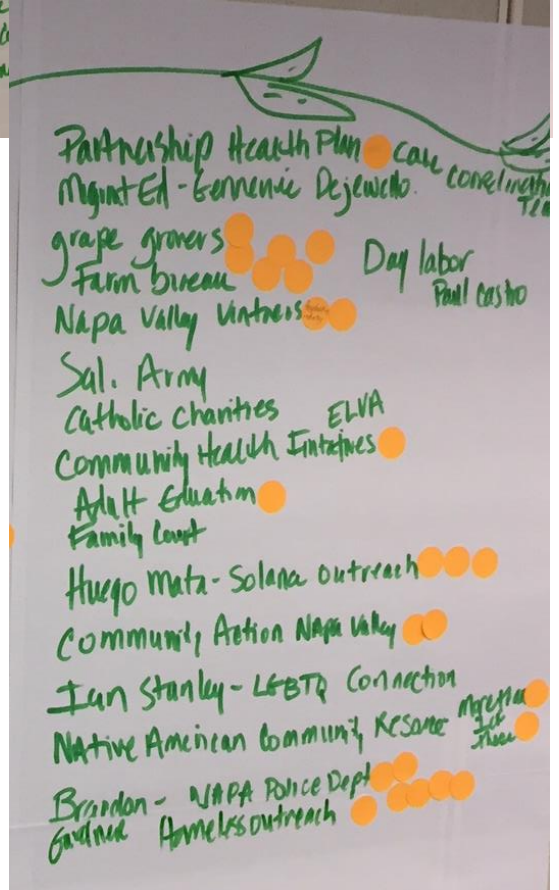 Partnership Health Plan care coordination
Mgmnt Ed -
grape growers
Farm bureau
Day labor
Paul Castro
Napa Valley Vintners
Sal. Army
Catholic Charities ELVA
Community Health Initiatives
Adult Eduation
Family Court
Huego Mata - Solana outreach
Community Action Napa Valley
Ian Stanley - LGBTQ Connection
Native American Community Resource
Brandon - NAPA Police Dept
Gardner Homeless outreach